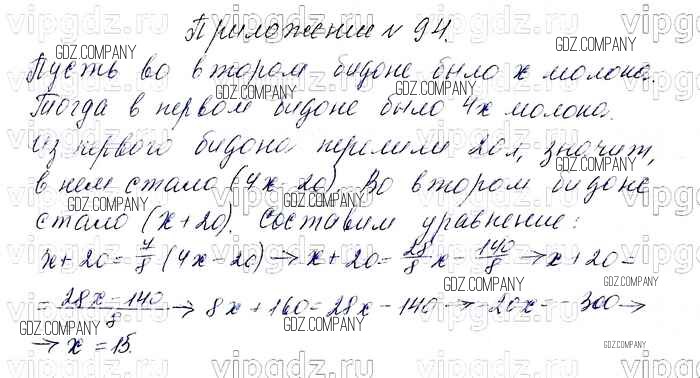 Приложение № 94.
Пусть во втором бидоне было x молока.
Тогда в первом бидоне было 4x молока.
Из первого бидона перелили 20л, значит,
в нем стало (4x-20). Во втором бидоне
стало (x+20). Составим уравнение:
x+20 = 7/8 (4x-20) → x+20 = 28/8 x - 140/8 → x+20 =
= (28x-140)/8 → 8x+160 = 28x-140 → -20x = -300 →
→ x = 15.